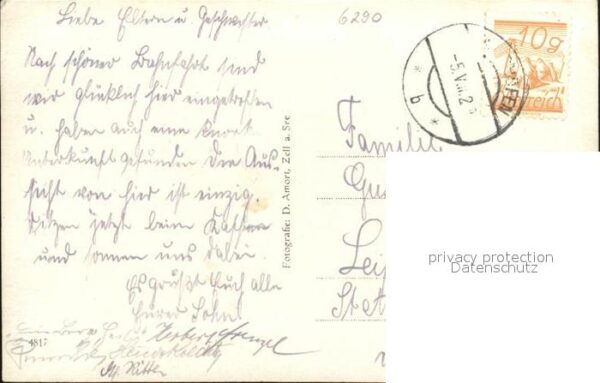 Liebe Eltern u. Geschwister
Nach schöner Bahnfahrt sind
wir glücklich hier eingetroffen
u. haben auch eine
Unterkunft gefunden. Die Aus-
sicht von hier ist einzig.
Sitzen jetzt beim Kaffee
und sonnen uns dabei.
Es grüßt Euch alle
Eurer Sohn
Herbert
Ritter
4817
Fotografie: D. Amort, Zell a. See
6290
b
10g
Familie
Gu
Lei
privacy protection
Datenschutz